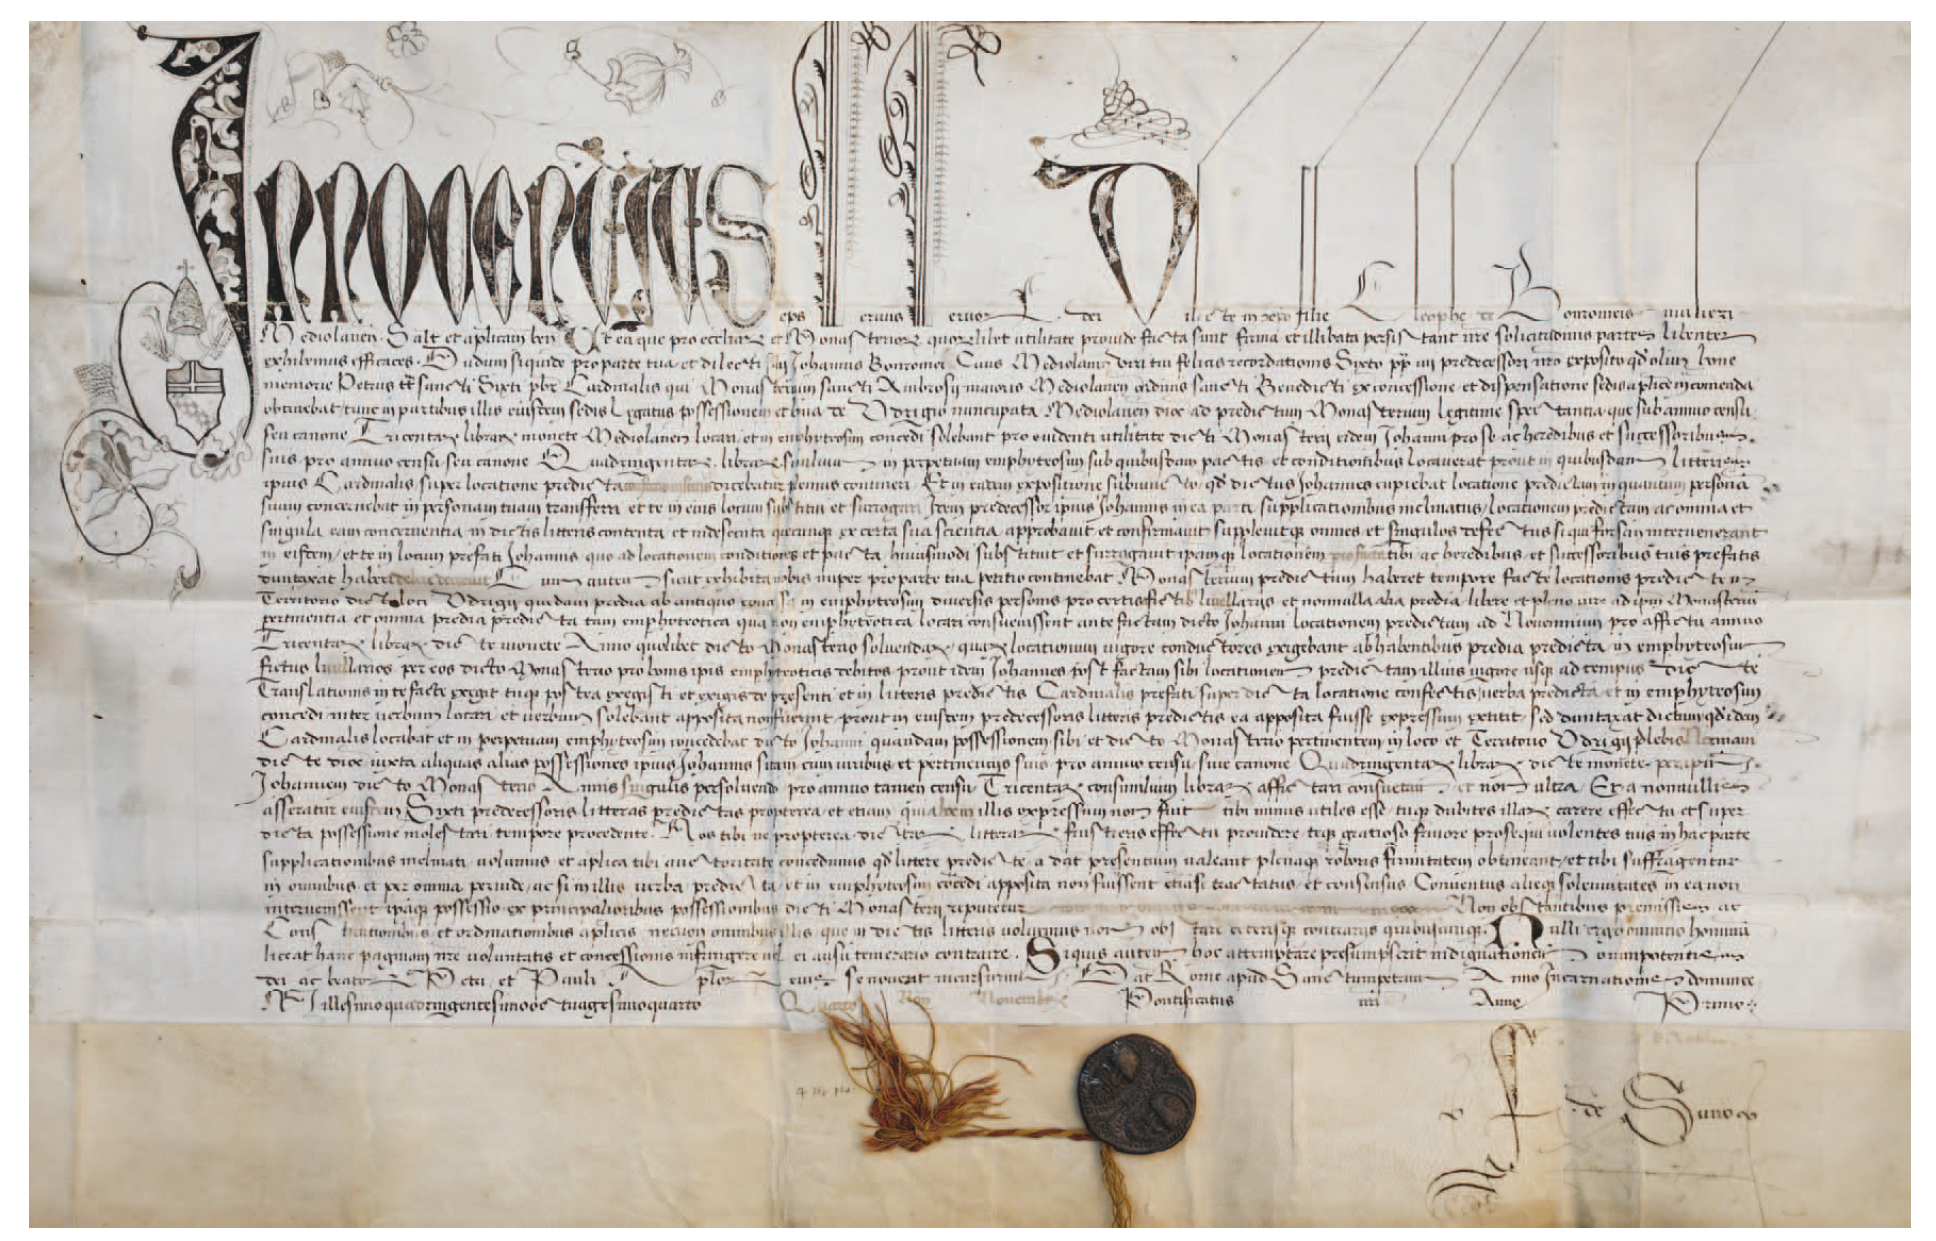 Innocentius
eps servus servor dei Dilecte in xpo filie Cleophe de Bonromeis mulieri
Mediolanen. Salt et aplicam ben Ut ea que pro ecclesiar et Monasterior quorlibet utilitate provide facta sunt firma et illibata persistant nre solicitudinis partes libenter
exhibemus efficaces. Dudum siquidem pro parte tua et dilecti filii Johannis Bonromei Civis Mediolanen Viri tui felicis recordationis Sixto pp iiii predecessori nro exposito qd olim bone
memorie Petrus tt sancti Sixti pbr Cardinalis qui Monasterium sancti Ambrosij maioris Mediolanen ordinis sancti Benedicti ex concessione et dispensatione sedis aplice in comenda
obtinebat tunc in partibus illis eiusdem sedis Legatus possessionem et bna de Vdrigio nuncupata Mediolanen dioc ad predictum Monasterium legitime spectantia que sub annuo censu
seu canone Tricentar librar monete Mediolanen locari et in emphyteosim concedi solebant pro evidenti utilitate dicti Monasterij eidem Johanni pro se ac heredibus et successoribus
suis pro annuo censu seu canone Quadringentar librar similium in perpetuam emphyteosim sub quibusdam pactis et conditionibus locaverat prout in quibusdam litteris
ipius Cardinalis super locatione predicta dicebatur plenius contineri Et in eadem expositione subiuncto qd dictus Johannes cupiebat locatione predictam in quantum personã
suam concernebat in personam tuam transferri et te in eius locum substitui et surrogari Idem predecessor ipius Johannis in ea parte supplicationibus inclinatus locationem predictam ac omnia et
singula eam concernentia in dictis litteris contenta et inde secuta quecunq ex certa sua scientia approbavit et confirmavit supplevitq omnes et singulos defectus si qui forsan intervenerant
in eisdem et te in locum prefati Johannis quo ad locationem conditiones et pacta huiusmodi substituit et surrogavit ipamq locationem tibi ac heredibus et successoribus tuis prefatis
duntaxat haberi Cum autem sicut exhibita nobis nuper pro parte tua petitio continebat Monasterium predictum haberet tempore facte locationis predicte in
Territorio dicti loci Vdrigij quedam predia ab antiquo in emphyteosim diversis personis pro certis fictis livellarijs et nonnulla alia predia libere et pleno iure ad ipm Monasterium
pertinentia et omnia predia predicta tam emphyteotica qua non emphyteotica locari consuevissent ante factam dicto Johanni locationem predictam ad Novennium pro affictu annuo
Tricentar librar dicte monete Anno quolibet dicto Monasterio solvendar quar locationum vigore conductores exigebant ab habentibus predia predicta in emphyteosim
fictus livellarios per eos dicto Monasterio pro bonis ipis emphyteoticis debitos prout idem Johannes post factam sibi locationem predictam illius vigore usq ad tempus dicte
Translationis in te facte exegit tuq postea exegisti et exigis de presenti et in litteris predictis Cardinalis prefati super dicta locatione confectis verba predicta et in emphyteosim
concedi inter verbum locari et verbum solebant apposita non fuerint prout in eiusdem predecessoris litteris predictis ea apposita fuisse expressum extitit sed duntaxat dictum qd idem
Cardinalis locabat et in perpetuam emphyteosim concedebat dicto Johanni quandam possessionem sibi et dicto Monasterio pertinentem in loco et Territorio Vdrigij plebis
dicte dioc iuxta aliquas alias possessiones ipius Johannis sitam cum iuribus et pertinencijs suis pro annuo censu sive canone Quadringentar librar dicte monete per ipm
Johannem dicto Monasterio Annis singulis persolvendo pro annuo tamen censu Tricentar consimilium librar affictari consuetam et non ultra Et a nonnullis
asseratur eiusdem Sixti predecessoris litteras predictas propterea et etiam in illis expressum non fuit tibi minus utiles esse tuq dubites illar carere effectu et super
dicta possessione molestari tempore procedente. Nos tibi ne propterea dictar litterar frustreris effectu providere teq gratioso favore prosequi volentes tuis in hac parte
supplicationibus inclinati volumus et aplica tibi auctoritate concedimus qd littere predicte a dat presentium valeant plenaq roboris firmitatem obtineant et tibi suffragentur
in omnibus et per omnia perinde ac si in illis verba predicta et in emphyteosim cõcedi apposita non fuissent etiasi tractatus et consensus Conventus alieq solennitates in ea non
intervenissent ipaq possessio ex principalioribus possessionibus dicti Monasterij reputetur Non obstantibus premissis ac
Constitutionibus et ordinationibus aplicis necnon omnibus illis que in dictis litteris volumus non obstare ceterisq contrarijs quibuscunq. Nulli ergo omnino hominũ
liceat hanc paginam nre voluntatis et concessionis infringere vel ei ausu temerario contraire. Siquis autem hoc attemptare presumpserit indignationem omnipotentis
dei ac beator Petri et Pauli Aplor eius se noverit incursurum Dat Rome apud Sanctumpetrum Anno Incarnationis dominice
Millesimoquadringentesimooctuagesimoquarto Quarto Non Novembr Pontificatus nri Anno Primo